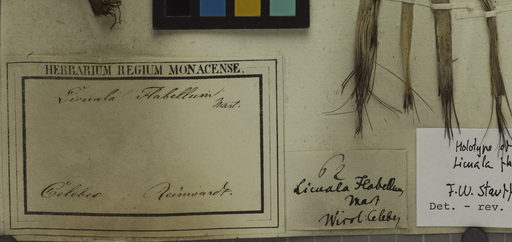 HERBARIUM REGIUM MONACENSE.
Licuala Flabellum
Mart.
Celebes Reinwardt.
Licuala Flabellum
Mart
Celebes
Holotype of
Licuala
F.W. Stauff
Det. - rev.